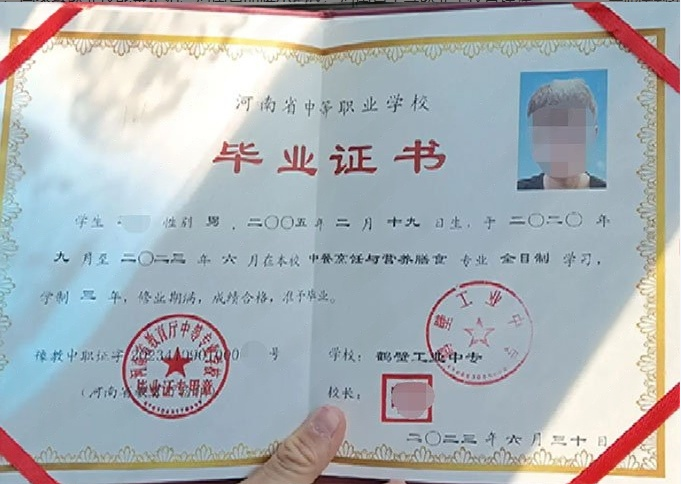 河南省中等职业学校
毕业证书
学生 性别 男，二〇〇五年 二 月 十九 日生，于 二〇二〇 年
九 月至 二〇二三 年 六 月在本校 中餐烹饪与营养膳食 专业 全日制 学习，
学制 三 年，修业期满，成绩合格，准予毕业。
豫教中职证字 2023410901000 号
学校： 鹤壁工业中专
校长：
毕业证专用章
鹤壁工业中专
二〇二三 年 六 月 三十 日